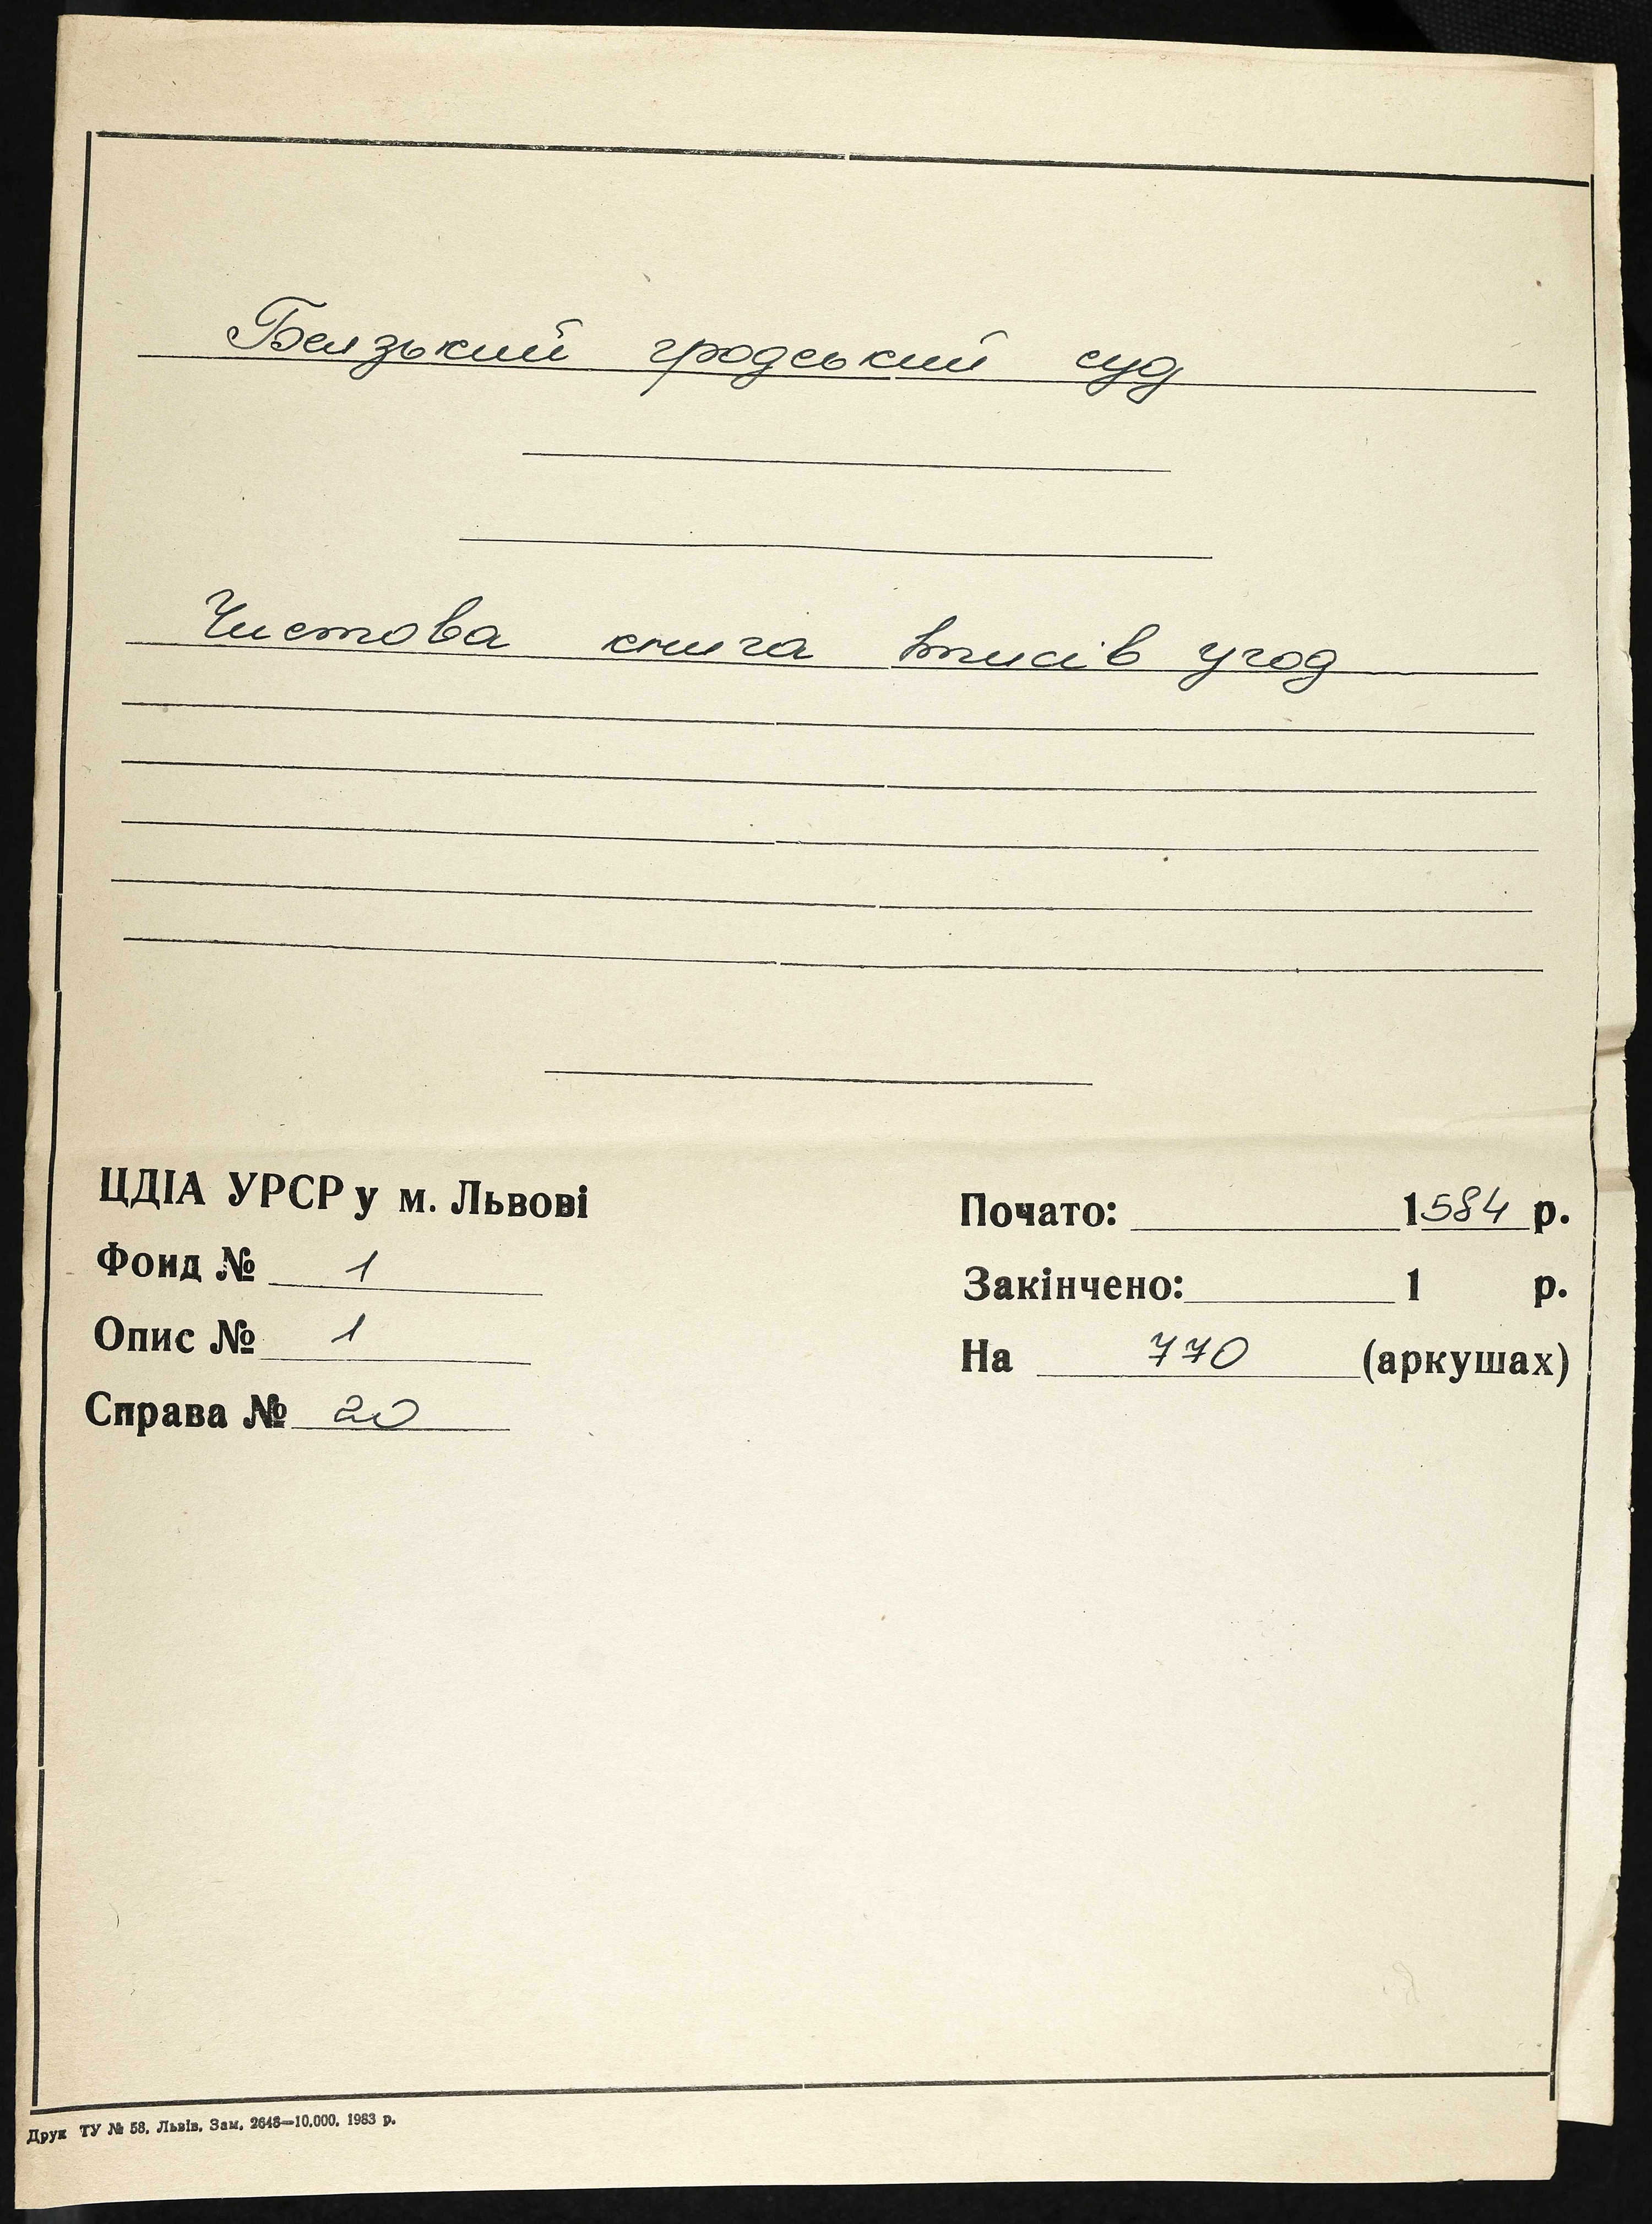 Белзький гродський суд
Чистова книга вписів угод
ЦДІА УРСР у м. Львові
Фонд № 1
Опис № 1
Справа № 20
Почато: 1584 р.
Закінчено: 1 р.
На 770 (аркушах)
Друк ТУ № 58. Львів. Зам. 2648—10.000. 1983 р.